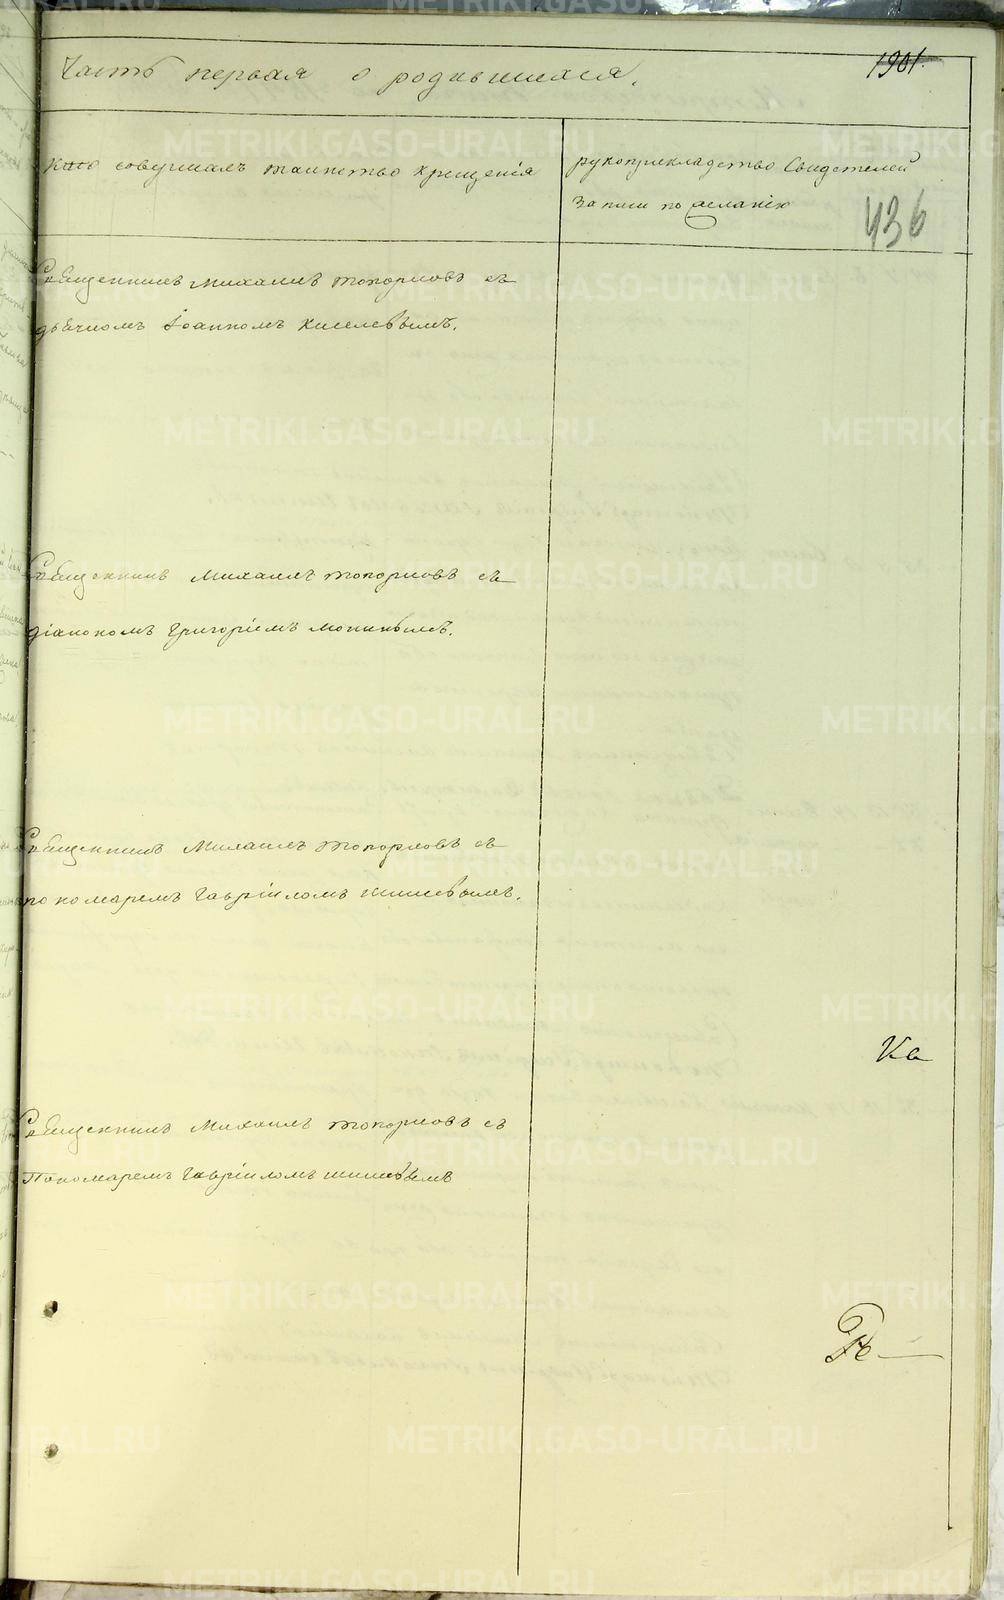 Часть первая о родившихся.
1901.
Кто совершалъ таинство крещенія
рукоприкладство Свидетелей
записи по желанію
436
Священникъ Михаилъ Топорковъ съ
дьячкомъ Іоанномъ Киселевымъ.
Священникъ Михаилъ Топорковъ съ
діакономъ Григоріемъ
Священникъ Михаилъ Топорковъ съ
пономаремъ Гавріиломъ Шишевымъ.
Священникъ Михаилъ Топорковъ съ
Пономаремъ Гавріиломъ Шишевымъ
METRIKI.GASO-URAL.RU